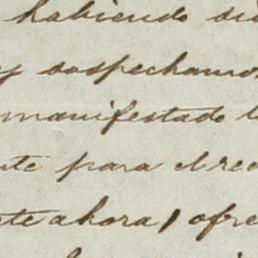 habiendo si
y sospechamo
manifestado l
te para el rec
te ahora, ofre